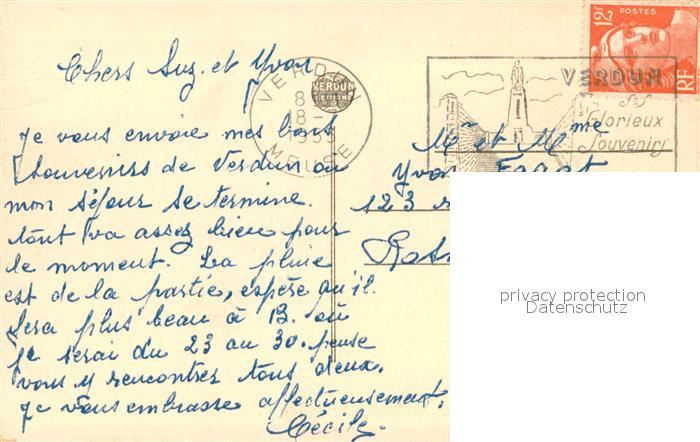 Chers Suz. et Yvon
Je vous envoie mes bons
souvenirs de Verdun ou
mon séjour se termine.
tout va assez bien pour
le moment. La pluie
est de la partie, espère qu'il
sera plus beau à B. où
je serai du 23 au 30. pense
vous y rencontrer tous deux.
Je vous embrasse affectueusement.
Cécile.
VERDUN
MEUSE
18 -
VERDUN
Glorieux
Souvenirs
12F
POSTES
RF
Mr et Mme
Yvon
123
privacy protection
Datenschutz